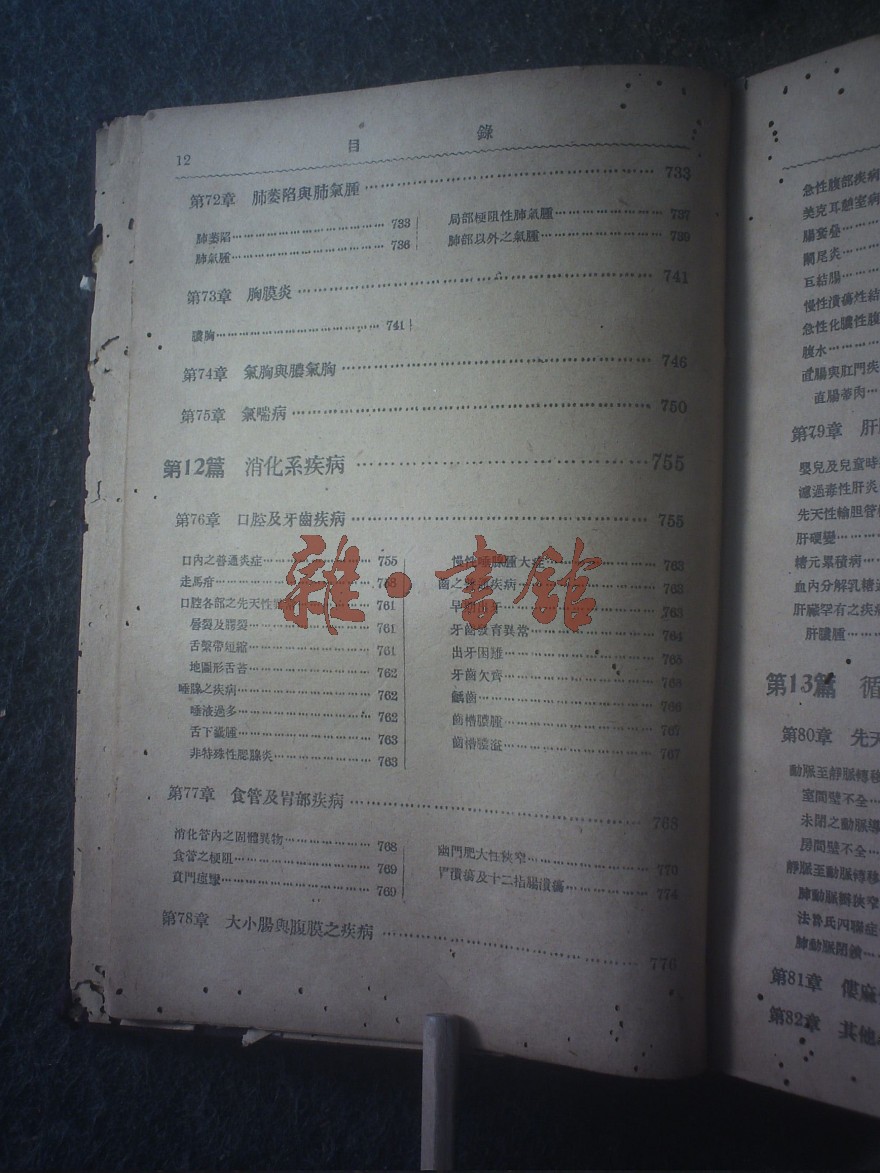 12
目 錄
第72章 肺萎陷與肺氣腫 733
肺萎陷 733
肺氣腫 736
局部梗阻性肺氣腫 737
肺部以外之氣腫 739
第73章 胸膜炎 741
膿胸 741
第74章 氣胸與膿氣胸 746
第75章 氣喘病 750
第12篇 消化系疾病 755
第76章 口腔及牙齒疾病 755
口內之普通炎症 755
走馬疳
口腔各部之先天性 761
唇裂及腭裂 761
舌繫帶短縮 761
地圖形舌苔 762
唾腺之疾病 762
唾液過多 762
舌下囊腫 763
非特殊性腮腺炎 763
慢性唾腺腫大症 763
齒之 疾病 763
牙齒發育異常 764
出牙困難 765
牙齒欠齊
齲齒 766
齒槽膿腫 767
齒槽膿溢 767
第77章 食管及胃部疾病 768
消化管內之固體異物 768
食管之梗阻 769
賁門痙攣 769
幽門肥大性狹窄 770
胃潰瘍及十二指腸潰瘍 774
第78章 大小腸與腹膜之疾病 776
急性腹部疾病
美克耳憩室病
腸套疊
闌尾炎
巨結腸
慢性潰瘍性結
急性化膿性腹
腹水
直腸與肛門疾
直腸蒂肉
第79章 肝
嬰兒及兒童時
濾過毒性肝炎
先天性輸胆管
肝硬變
糖元累積病
血內分解乳糖
肝臟罕有之疾
肝膿腫
第13篇 循
第80章 先天
動脈至靜脈轉移
室間璧不全
未閉之動脈導
房間璧不全
靜脈至動脈轉移
肺動脈瓣狹窄
法魯氏四聯症
肺動脈閉鎖
第81章 僂麻
第82章 其他
雜·書館